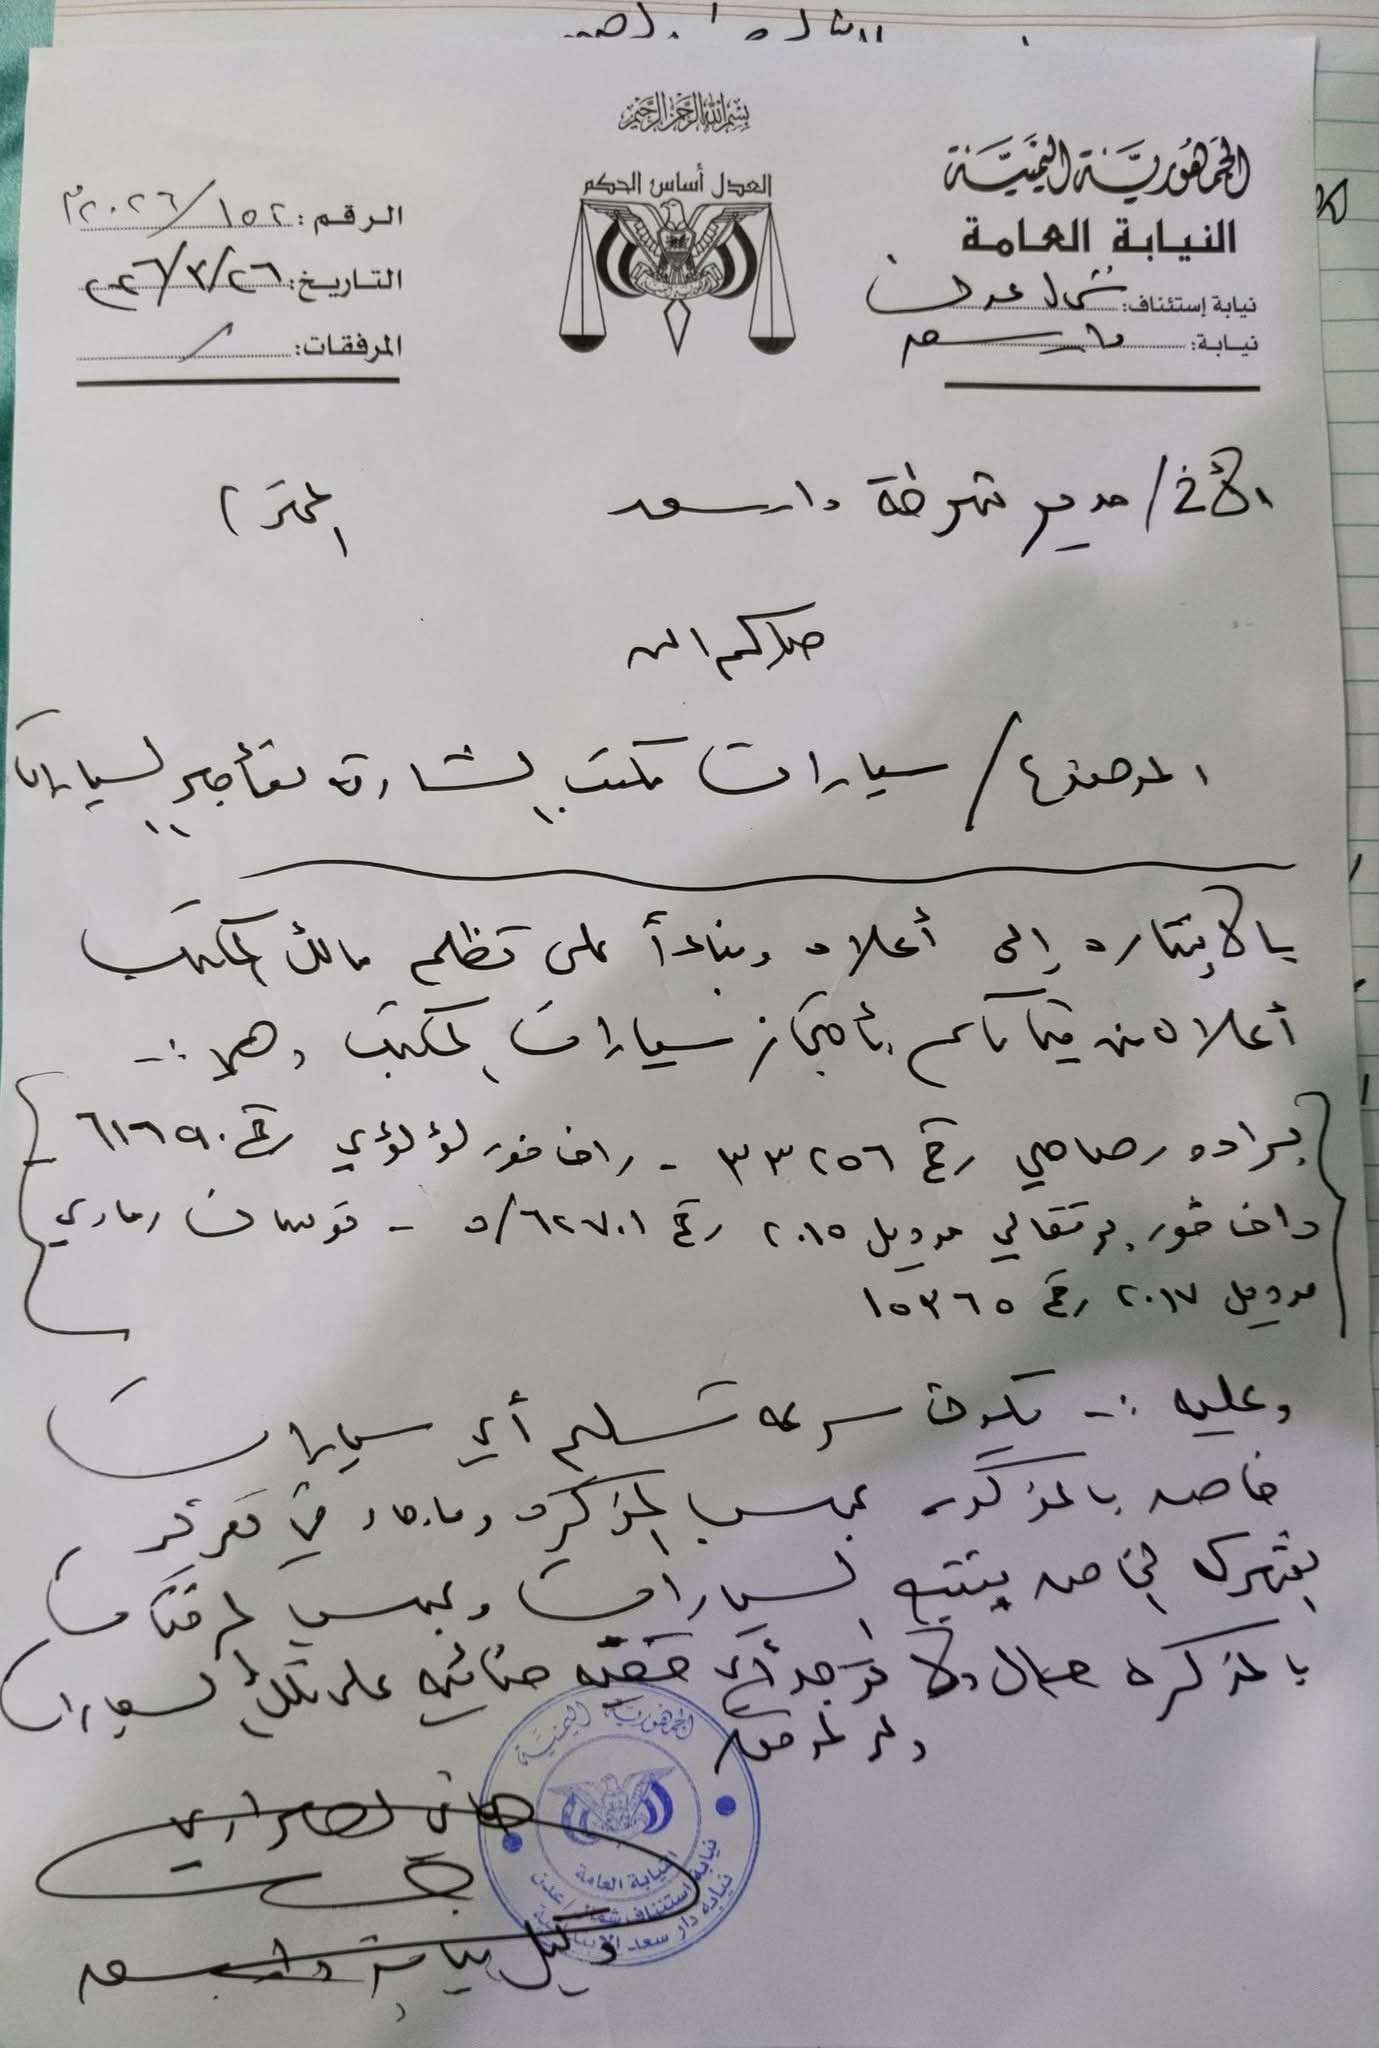 بسم الله الرحمن الرحيم
الجمهورية اليمنية
النيابة العامة
نيابة إستئناف: شمال عدن
نيابة: دار سعد
العدل أساس الحكم
الرقم: ١٥٢/٢٠٢٦م
التاريخ: ٢٦/٣/٢٠٢٦
المرفقات: /
الأخ/ مدير شرطة دار سعد المحترم
حياكم الله
الموضوع/ سيارات مكتب لتأجير السيارات
بالإشاره إلى أعلاه وبناءاً على تظلم مالك المكتب
أعلاه من قيامكم بأحتجاز سيارات المكتب وهما :-
برادو رصاصي رقم ٣٣٢٥٦ - راف فور لؤلؤي رقم ٦١٦٩٠
راف فور برتقالي موديل ٢٠١٥ رقم ٥/٦٢٧٠١ - توسان رمادي
موديل ٢٠١٧ رقم ١٥٣٦٥
وعليه :- يكون سرعه تسليم أي سيارات
خاصه بالمذكور بحسب المذكره وما جاء في تقرير
الخاص السيارات وبحسب المرفقات
بالمذكره حال ولا توجد أي قضيه جنائيه على تلك السيارات
وكيل نيابة دار سعد
الجمهورية اليمنية
النيابة العامة
نيابة استئناف شمال عدن
نيابة دار سعد الابتدائية